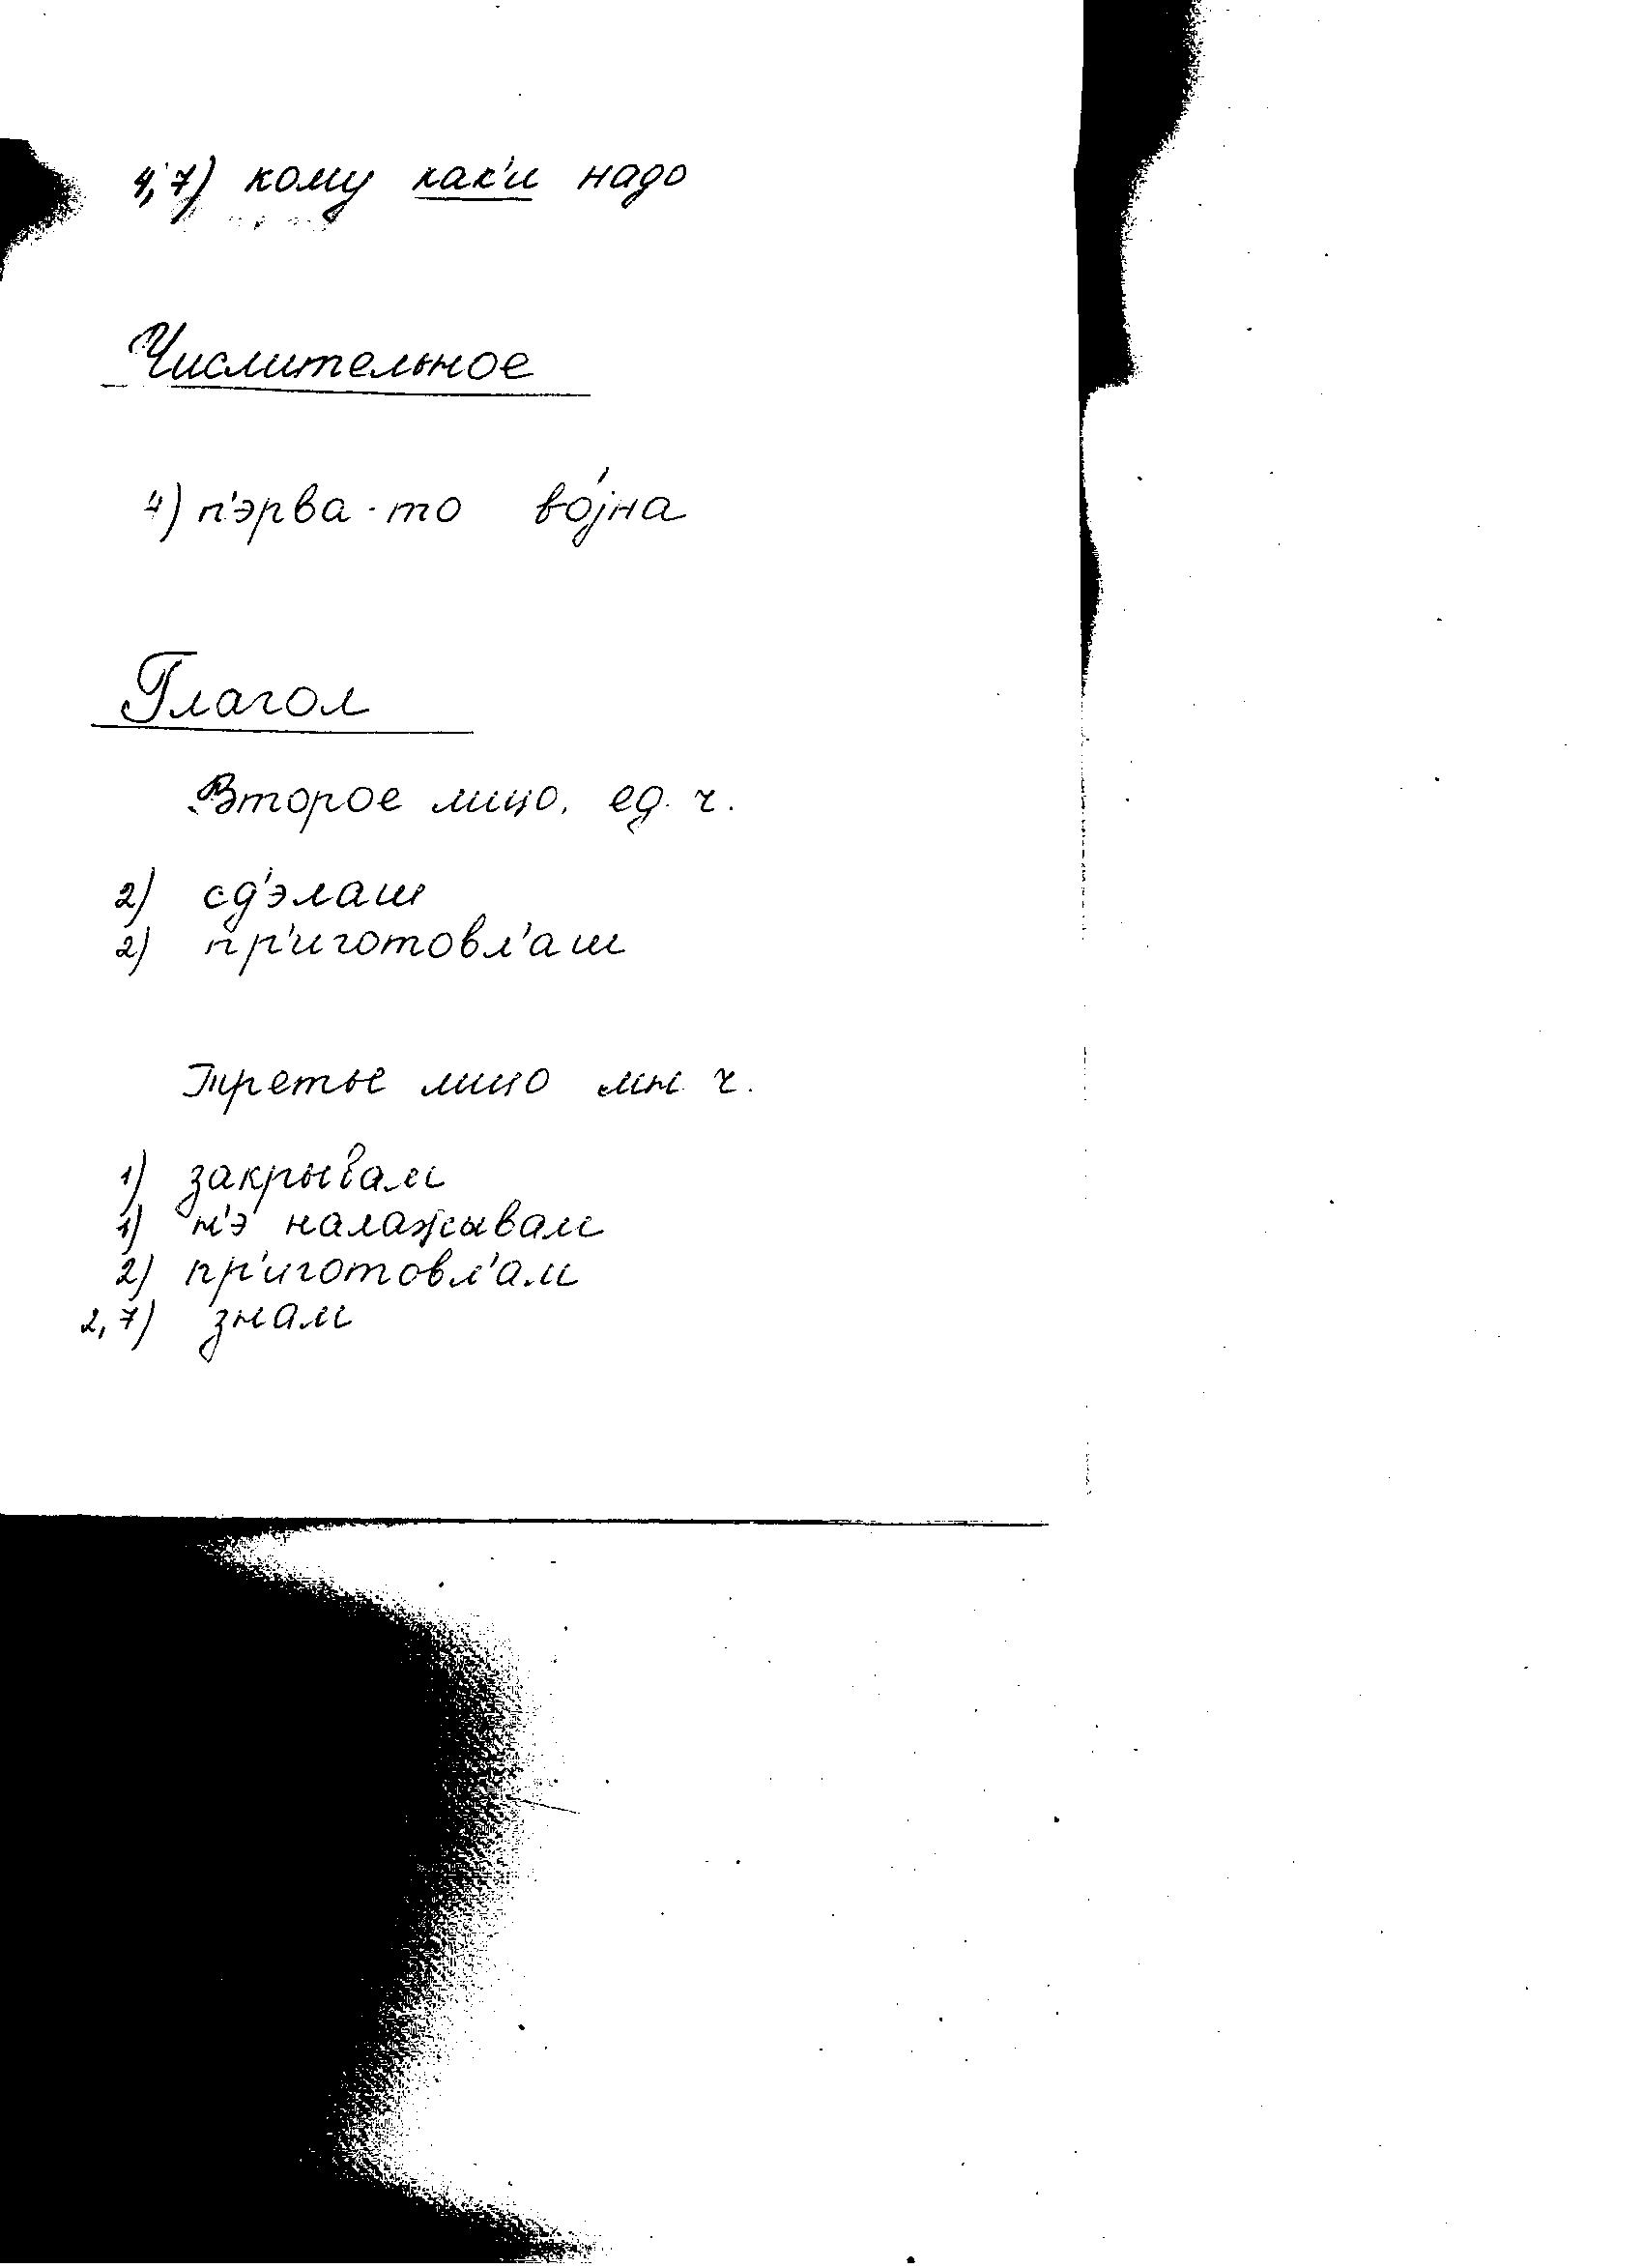 4,7) кому как'и надо
Числительное
4) п'эрва-то во́jна
Глагол
Второе лицо, ед. ч.
2) сд'элаш
2) пр'иготовл'аш
Третье лицо мн. ч.
1) закрывам
1) н'э налажывам
2) пр'иготовл'ам
2,7) знам